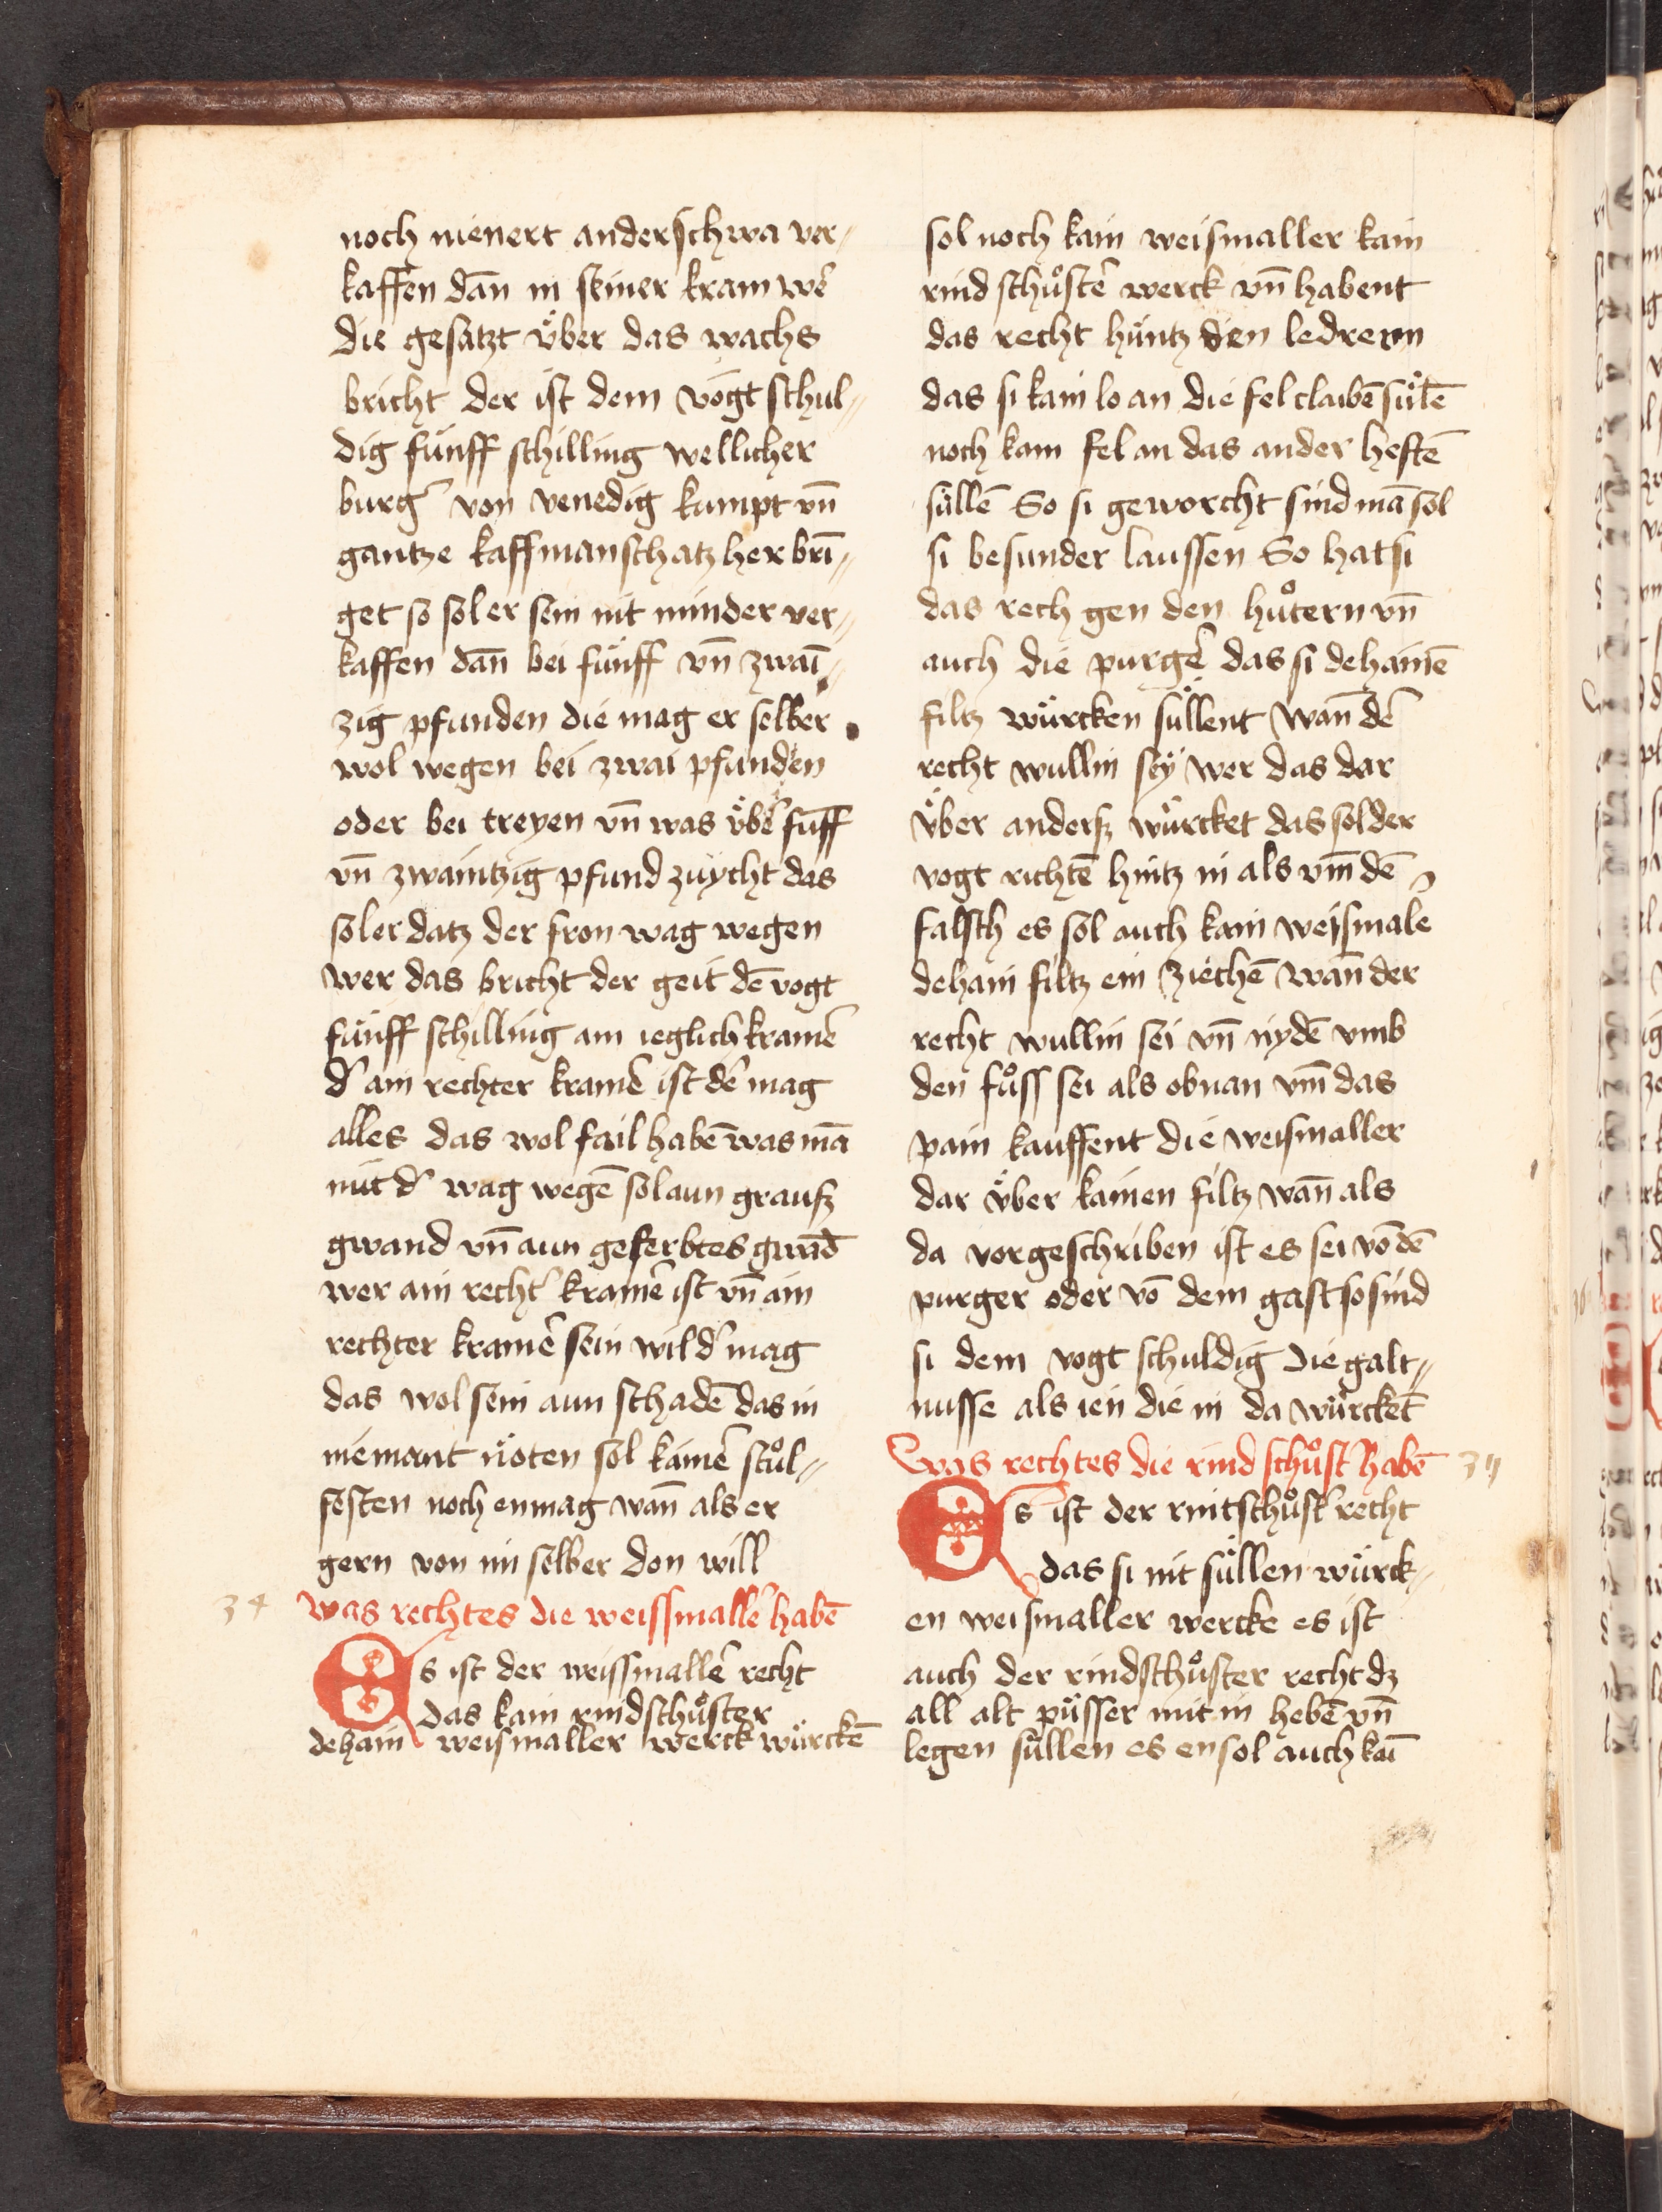 noch nienert anderschwa ver„
kaffen dañ in seiner kram wer̄
die gesatzt v̈ber das wachs
bricht der ist dem vogt schul„
dig fünff schilling wellicher
burg̓ von venedig kumpt vn̄
gantze kaffmanschatz her brī„
get so sol er sein nit minder ver„
kaffen dañ bei fünff vn̄ zwaī„
zig pfunden die mag er selber
wol wegen bei zwai pfunden
oder bei treyen vn̄ was v̈ber̄ fünff
vn̄ zwaintzig pfund zuycht das
sol er datz der fron wag wegen
wer das bricht der geit dē vogt
fünff schilling ain ieglich kramer̄
d̓ ain rechter kramer̄ ist der̄ mag
alles das wol fail habē was mā
mit d̓ wag wegē sol aun grausz
gwand vn̄ aun geferbtes gwād
wer ain recht̓ kramer̄ ist vn̄ ain
rechter kramer̄ sein wil d̓ mag
das wol sein aun schadē das in
niemant nöten sol kainer̄ stůl„
festen noch enmag wañ als er
gern von im selber don will
34 was rechtes die weissmaller̄ habē
Es ist der weissmaller̄ recht
das kain rindschůster
dehain weismaller werck würckē
sol noch kain weismaller kain
rind schůster̄ werck vn̄ habent
das recht hüntz den ledrernn
das si kain lo an die fel claibē sülē
noch kain fel an das ander heftē
süllē So si geworcht sind mā sol
si besunder laussen So hat si
das rech gen den hůtern vn̄
auch die purger̄ das si dehainē
filtz würcken süllent wañ der̄
recht wullin sey wer das dar
v̈ber andersz würcket das sol der
vogt richtē hintz in als vm̄ dē
falsch es sol auch kain weismaler̄
dehain filtz ein ziechē wañ der
recht wullin sei vn̄ nydē vmb
den fůss sei als obnan vm̄ das
pain kauffent die weismaller
dar v̈ber kainen filtz wañ als
da vorgeschriben ist es sei vō dē
purger oder vō dem gast so sind
si dem vogt schuldig die galt„
nusse als ien die in da würckēt
Was rechtes die rind schůst̓ habē 35
Es ist der rintschůst̓ recht
das si nit süllen würck„
en weismaller wercke es ist
auch der rindschůster recht dz
all alt püsser mit in hebē vn̄
legen süllen es ensol auch kaī